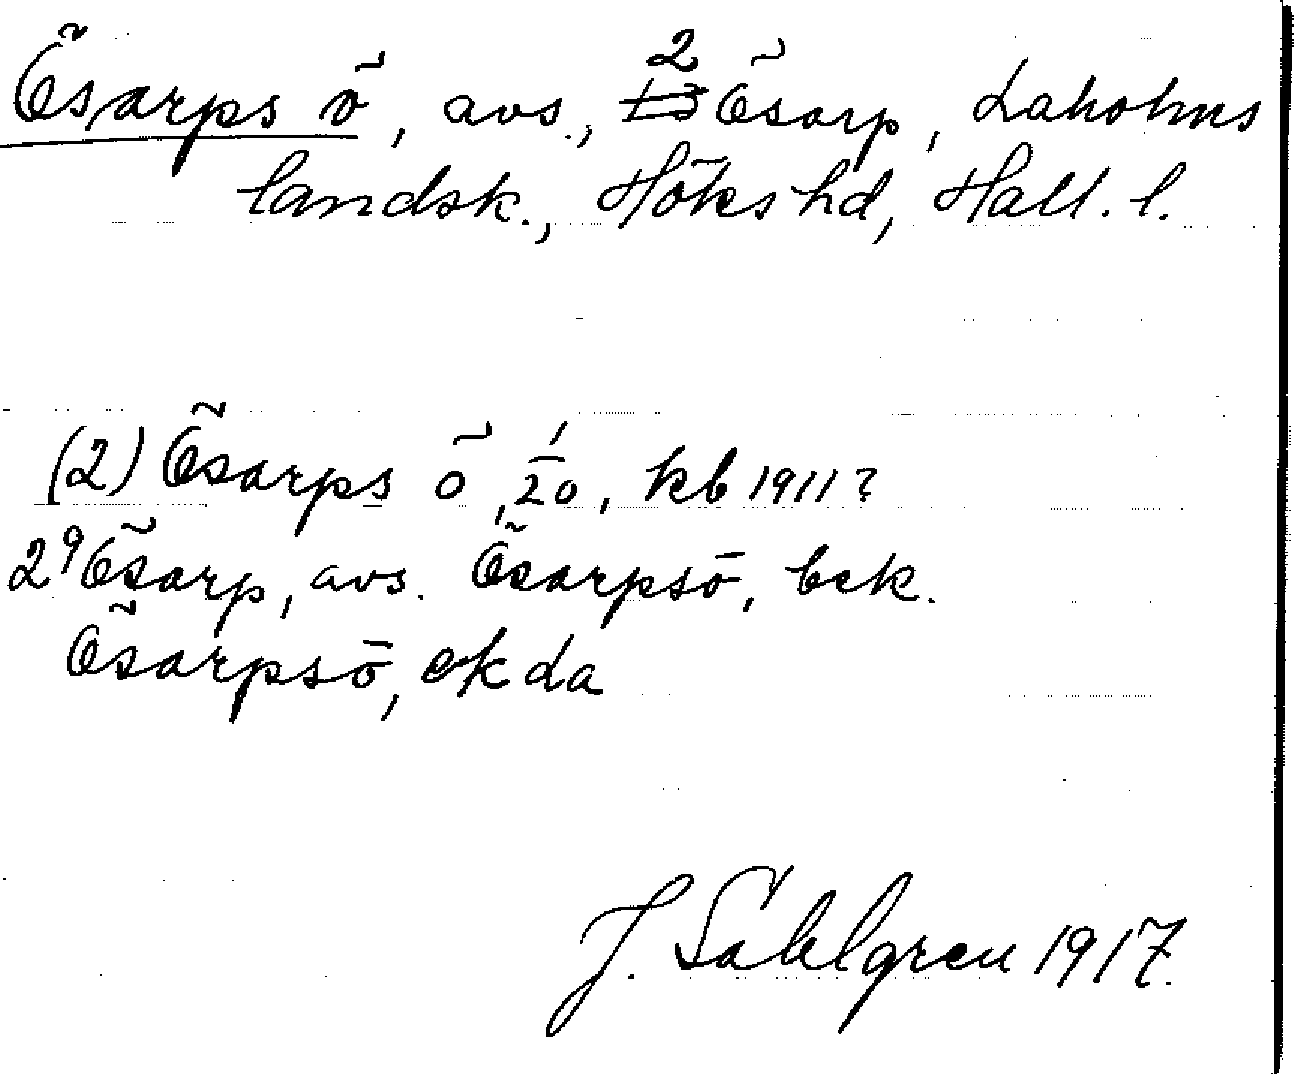 Ösarps ö, avs., 2 Ösarp, Laholms
landsk., Höks hd, Hall. l.
(2) Ösarps ö, 1/20, kb 1911?
2⁹ Ösarp, avs. Ösarpsö, bek.
Ösarpsö, ek da
J. Sahlgren 1917.